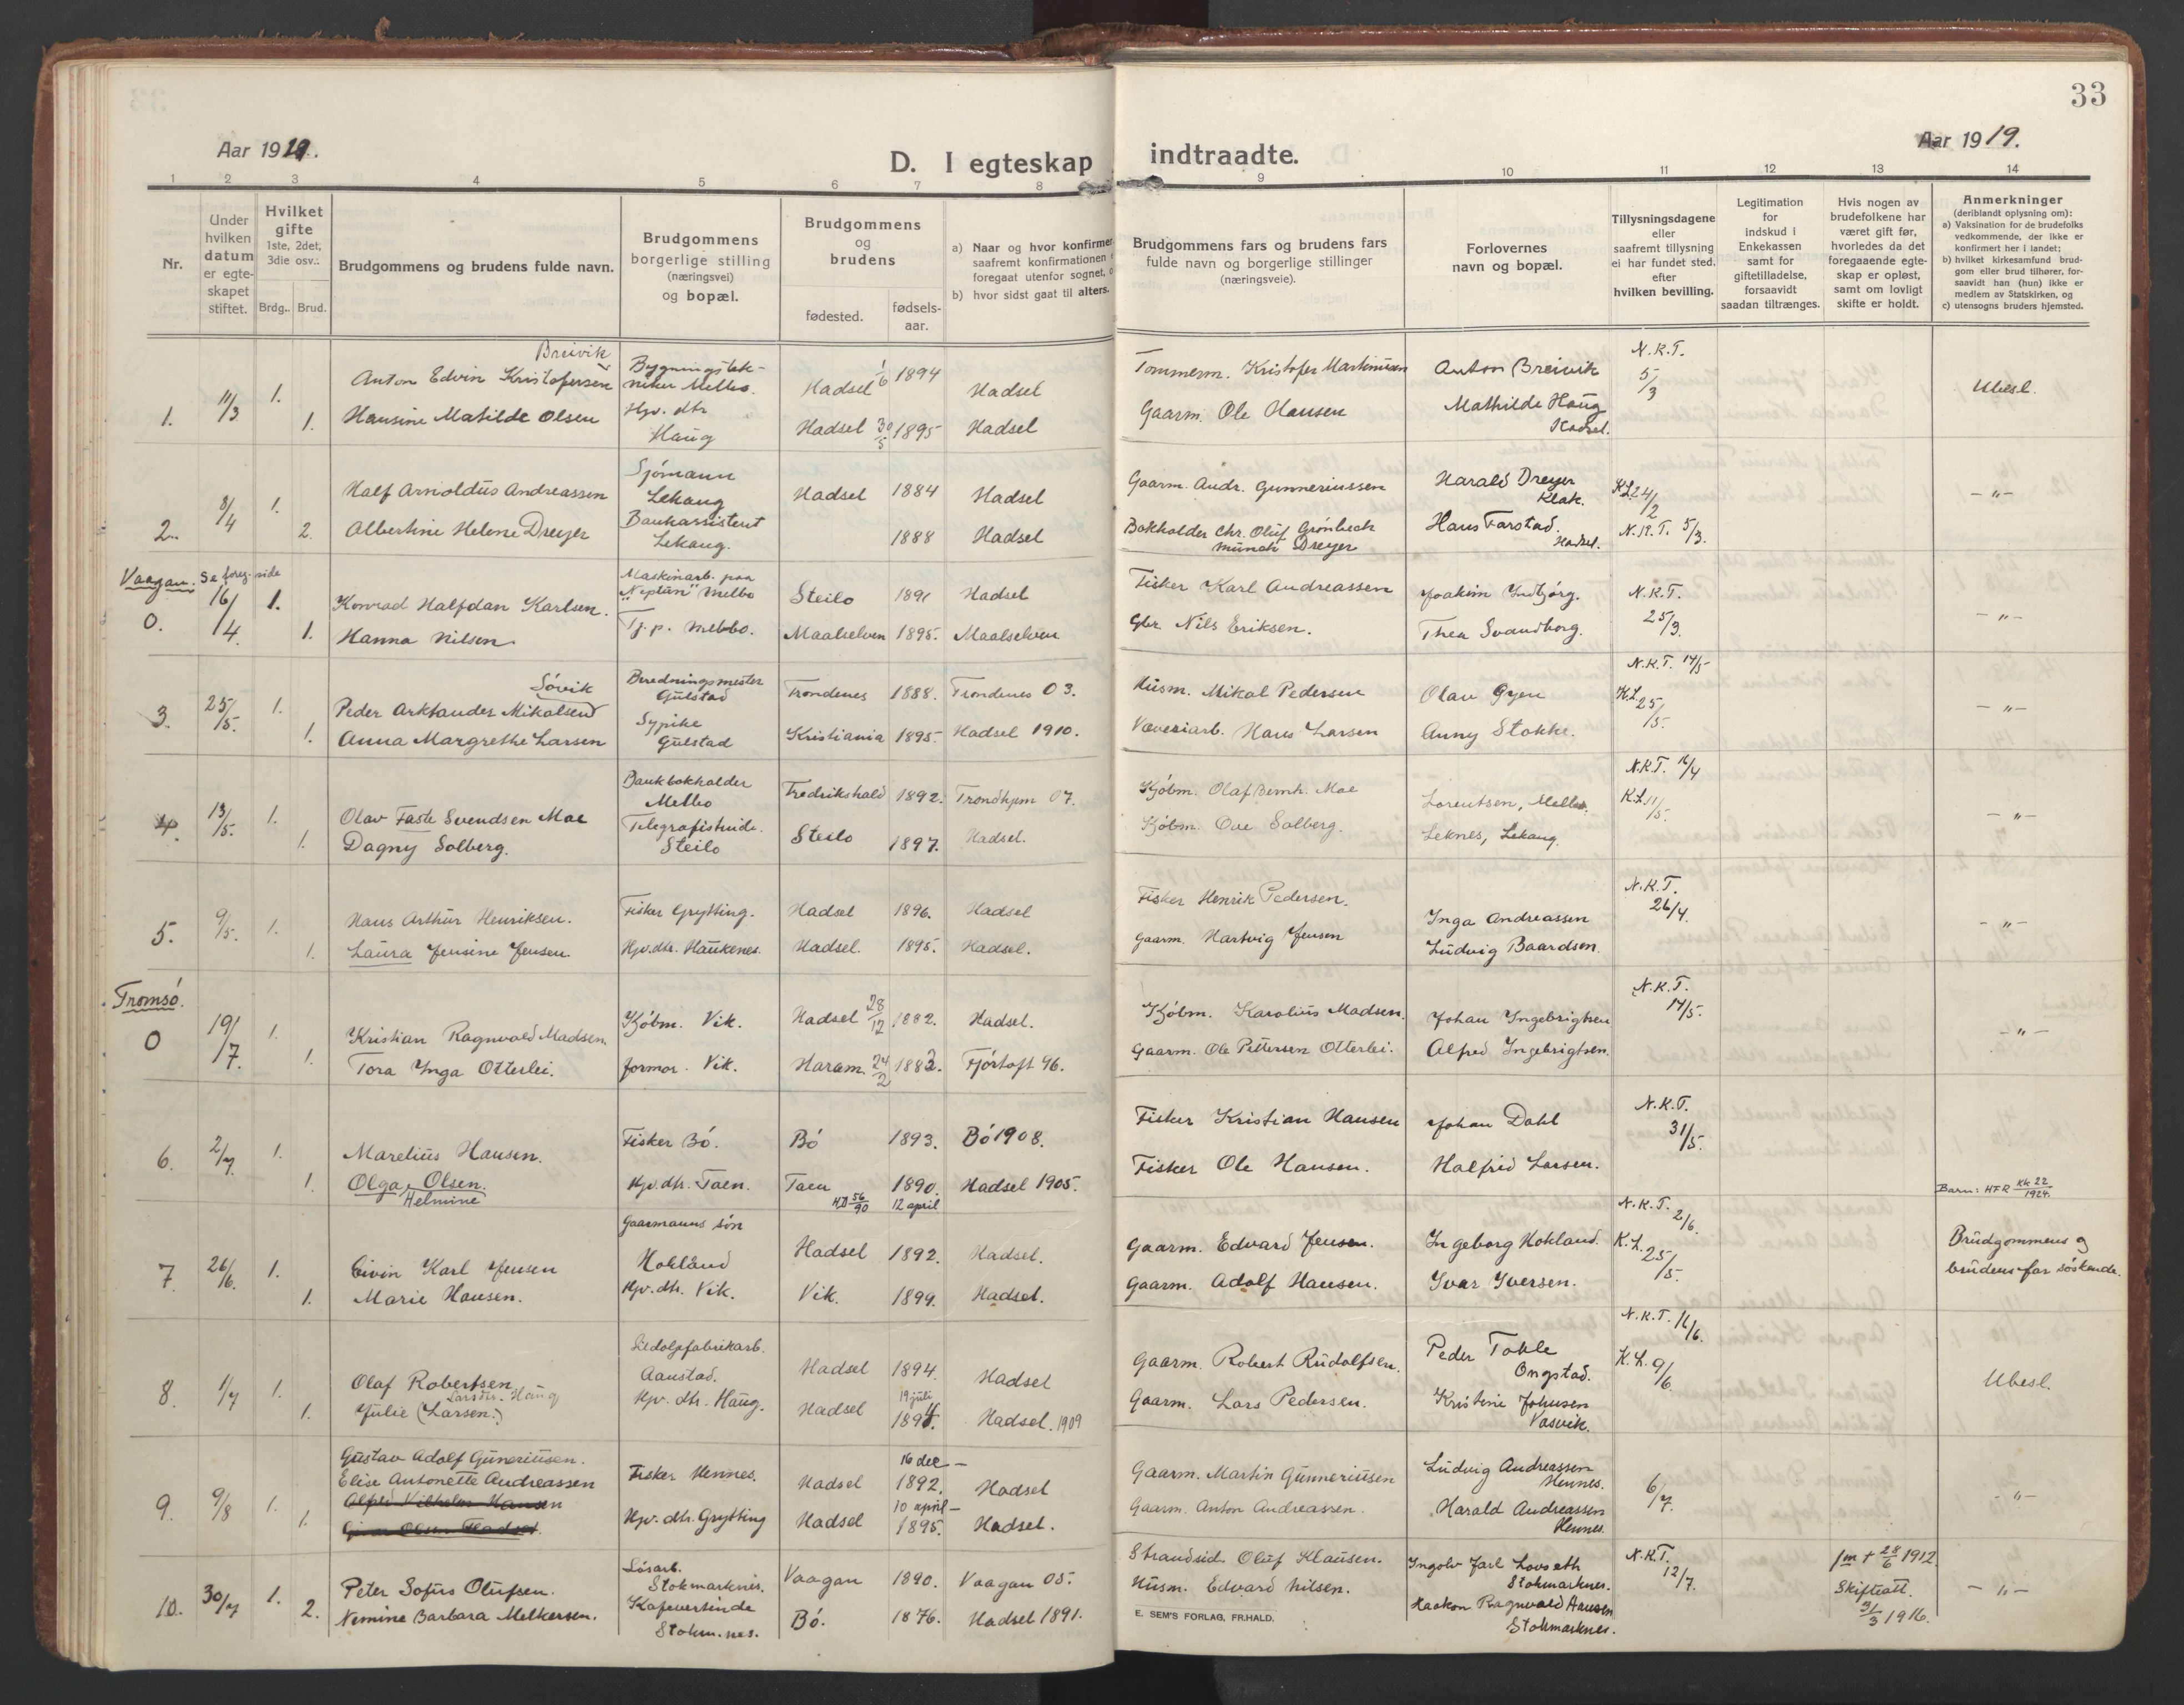 33
Aar 1919.
Aar 1919.
D. I egteskap indtraadte.
1 2 3 4 5 6 7 8 9 10 11 12 13 14
Nr.
Under hvilken datum er egte-skapet stiftet.
Hvilket gifte 1ste, 2det, 3die osv.:
Brdg.. Brud.
Brudgommens og brudens fulde navn.
Brudgommens borgerlige stilling (næringsvei) og bopæl.
Brudgommens og brudens
fødested.
fødsels-aar.
a) Naar og hvor konfirmer
saafremt konfirmationen
foregaat utenfor sognet,
b) hvor sidst gaat til alters.
Brudgommens fars og brudens fars
fulde navn og borgerlige stillinger
(næringsveie).
Forlovernes
navn og bopæl.
Tillysningsdagene
eller
saafremt tillysning
ei har fundet sted.
efter
hvilken bevilling.
Legitimation
for
indskud i
Enkekassen
samt for
giftetilladelse,
forsaavidt
saadan tiltrænges.
Hvis nogen av
brudefolkene har
været gift før,
hvorledes da det
foregaaende egte-
skap er opløst,
samt om lovligt
skifte er holdt.
Anmerkninger
(deriblandt oplysning om):
a) Vaksination for de brudefolks
vedkommende, der ikke er
konfirmert her i landet;
b) hvilket kirkesamfund brud-
gom eller brud tilhører, for-
saavidt han (hun) ikke er
medlem av Statskirken, og
c) utensogns bruders hjemsted.
1. 11/3 1. Anton Edvin Kristofersen Breivik Bygningstek-niker Melbo. Hadsel 1/6 1894 Hadsel Tømmerm. Kristofer Martinusen Anton Breivik N.K.T. 5/3 Ubesl.
1. Hansine Matilde Olsen Hjv. dtr Haug Hadsel 30/5 1895 Hadsel Gaarm. Ole Hansen Mathilde Haug Hadsel.
2. 8/4 1. Half Arnoldus Andreassen Sjømann Lekang Hadsel 1884 Hadsel Gaarm. Andr. Gunneriussen Harald Dreyer Klak. K.L. 24/2 -"-
2. Albertine Helene Dreyer Bankassistent Lekang. 1888 Hadsel Bokholder Chr. Oluf Grønbech Munch Dreyer Hans Farstad. Hadsel. N.K.T. 5/3.
Vaagan. Se foreg. side
0. 16/4. 1. Konrad Halfdan Karlsen. Maskinarb. paa "Neptun" Melbo Steilo 1891 Hadsel Fisker Karl Andreassen Joakim Indbjörg. N.K.T. 25/3. -"-
1. Hanna Nilsen. Tj.p. Melbo. Maalselven 1895. Maalselven Gbr Nils Eriksen. Thea Svandborg.
3. 25/5. 1. Peder Arktander Mikalsen Søvik Beredningsmester Gulstad Trondenes 1888. Trondenes 03. Husm. Mikal Pedersen Olav Gyen N.K.T. 14/5 K.L. 25/5. -"-
1. Anna Margrethe Larsen Sypike Gulstad Kristiania 1895. Hadsel 1910. Væveriarb. Hans Larsen Anny Stokke.
4. 13/5. 1. Olav Faste Svendsen Moe Bankbokholder Melbo Fredrikshald 1892. Trondhjem 07. Kjøbm. Olaf Bernh. Moe Lorentsen, Melbo. N.K.T. 16/4 K.L. 11/5. -"-
1. Dagny Solberg. Telegrafistinde. Steilo Steilo 1897. Hadsel. Kjøbm. Ove Solberg. Leknes, Lekang.
5. 9/5. 1. Hans Arthur Henriksen. Fisker Grytting. Hadsel 1896. Hadsel Fisker Henrik Pedersen. Inga Andreassen N.K.T. 26/4. -"-
1. Laura Jensine Jensen Hjv.dtr. Haukenes. Hadsel. 1895. Hadsel. Gaarm. Hartvig Jensen Ludvig Baardsen.
Tromsø.
0 19/7. 1. Kristian Ragnvald Madsen Kjøbm. Vik. Hadsel 28/12 1882. Hadsel. Kjøbm. Karolius Madsen. Johan Ingebrigtsen N.K.T. 14/5. -"-
1. Tora Inga Otterlei. Jormor. Vik. Haram. 24/2 1883. Fjörtoft 96. Gaarm. Ole Pettersen Otterlei. Alfred Ingebrigtsen.
6. 2/7. 1. Marelius Hansen. Fisker Bø. Bø 1893. Bø 1908. Fisker Kristian Hansen Johan Dahl N.K.T. 31/5.
1. Olga Helmine Olsen. Hjv.dtr. Taen. Taen HD 56/90 1890. 12 april Hadsel 1905. Fisker Ole Hansen. Halfrid Larsen. Barn: HFR Kk 22/1924.
7. 26/6. 1. Eivin Karl Jensen Gaarmanns søn Hokland Hadsel 1892. Hadsel. Gaarm. Edvard Jensen. Ingeborg Hokland. N.K.T. 2/6. K.L. 25/5. Brudgommens og brudens far søskende.
1. Marie Hansen. Hjv.dtr. Vik. Vik. 1899. Hadsel. Gaarm. Adolf Hansen. Ivar Iversen.
8. 1/7 1. Olaf Robertsen Sildoljefabrikarb. Aanstad. Hadsel 1894. Hadsel Gaarm. Robert Rudolfsen. Peder Tokle Ongstad. N.K.T. 16/6. K.L. 9/6. Ubesl.
1. Julie (Larsen.) Larsdtr. Haug Hjv. dtr. Haug. Hadsel 19 juli 1894. Hadsel. 1909 Gaarm. Lars Pedersen. Kristine Johnsen Vasvik.
9. 9/8 1. Gustav Adolf Guneriusen. Fisker Hennes. Hadsel 16 dec - 1892. Hadsel Gaarm. Martin Gunneriusen Ludvig Andreassen Hennes. 6/7. -"-
1. Elise Antonette Andreassen Hjv. dtr. Grytting Hadsel 10 april - 1895. Hadsel. Gaarm. Anton Andreassen. Harald Andreassen Hennes.
Alfred Vilhelm Hansen
10. 30/7 1. Peter Sofus Olufsen. Løsarb. Stokmarknes. Vaagan 1890. Vaagan 05. Strandsid. Oluf Klausen. Ingolv Jarl Lovseth Stokmarknes. N.K.T. 12/7. 1m + 28/6 1912. -"-
2. Nemine Barbara Melkersen. Kafevertinde Stokm.nes. Bø. 1876. Hadsel 1891. Husm. Edvard Nilsen. Haakon Ragnvald Hansen Stokmarknes. Skifteatt. 31/3 1916.
E. SEM'S FORLAG, FR.HALD.